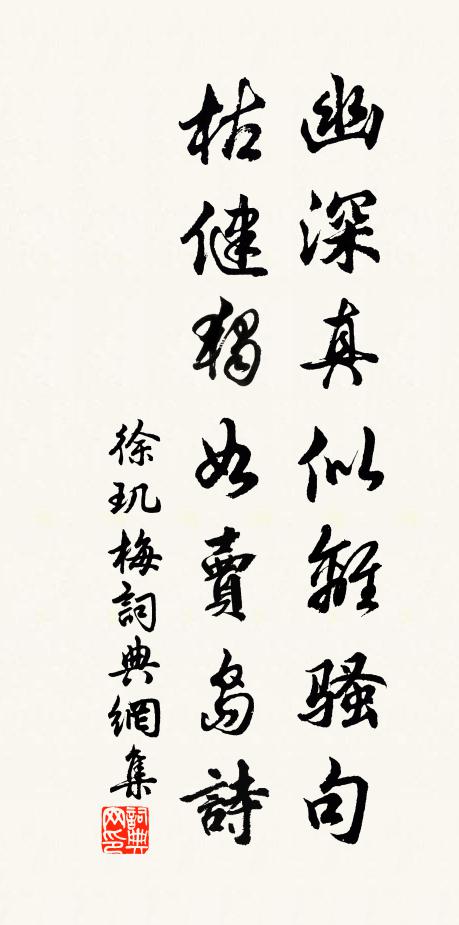 幽深真似離騷句
枯健獨如賣島詩
徐玑梅詞典網集
詞典网印